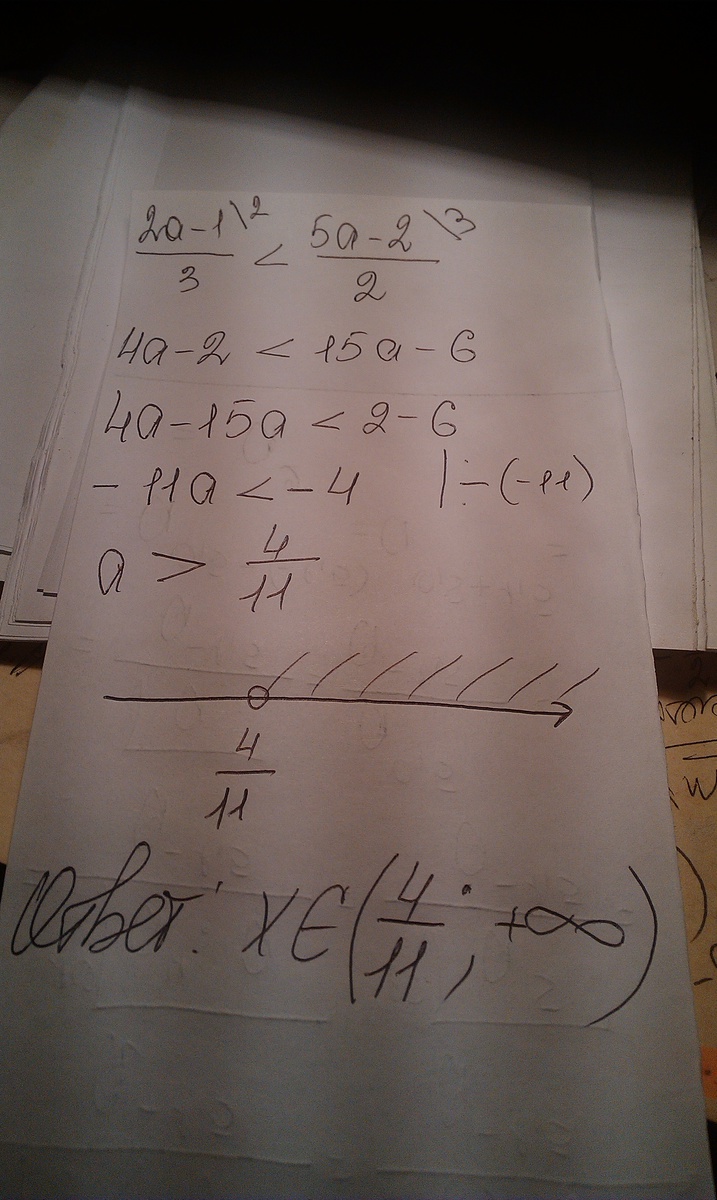 (2a-1)/3 \2 < (5a-2)/2 \3
4a-2 < 15a-6
4a-15a < 2-6
-11a < -4 |÷(-11)
a > 4/11
4/11
Ответ: x∈(4/11; +∞)